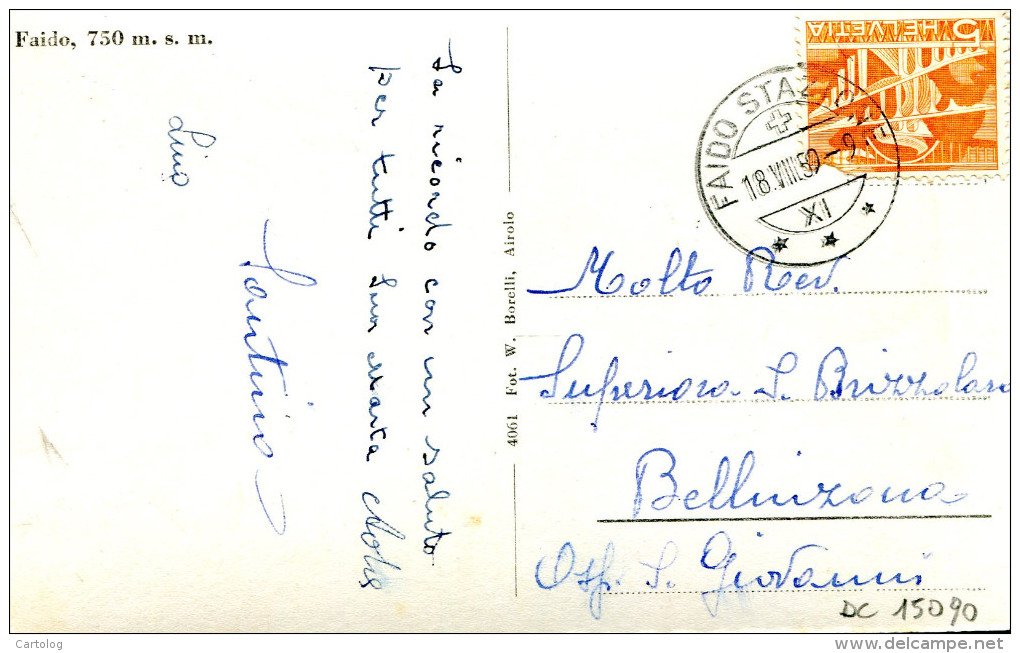 Faido, 750 m. s. m.
La ricordo con un saluto
per tutti Suor Marta
Lino
Santino
4061 Fot. W. Borelli, Airolo
HELVETIA 5
FAIDO STAZIONE
18.VIII.59-9
XI
Molto Rev.
Superiora S. Brizzolara
Bellinzona
Osp. S. Giovanni
DC 15090
Cartolog
www.delcampe.net